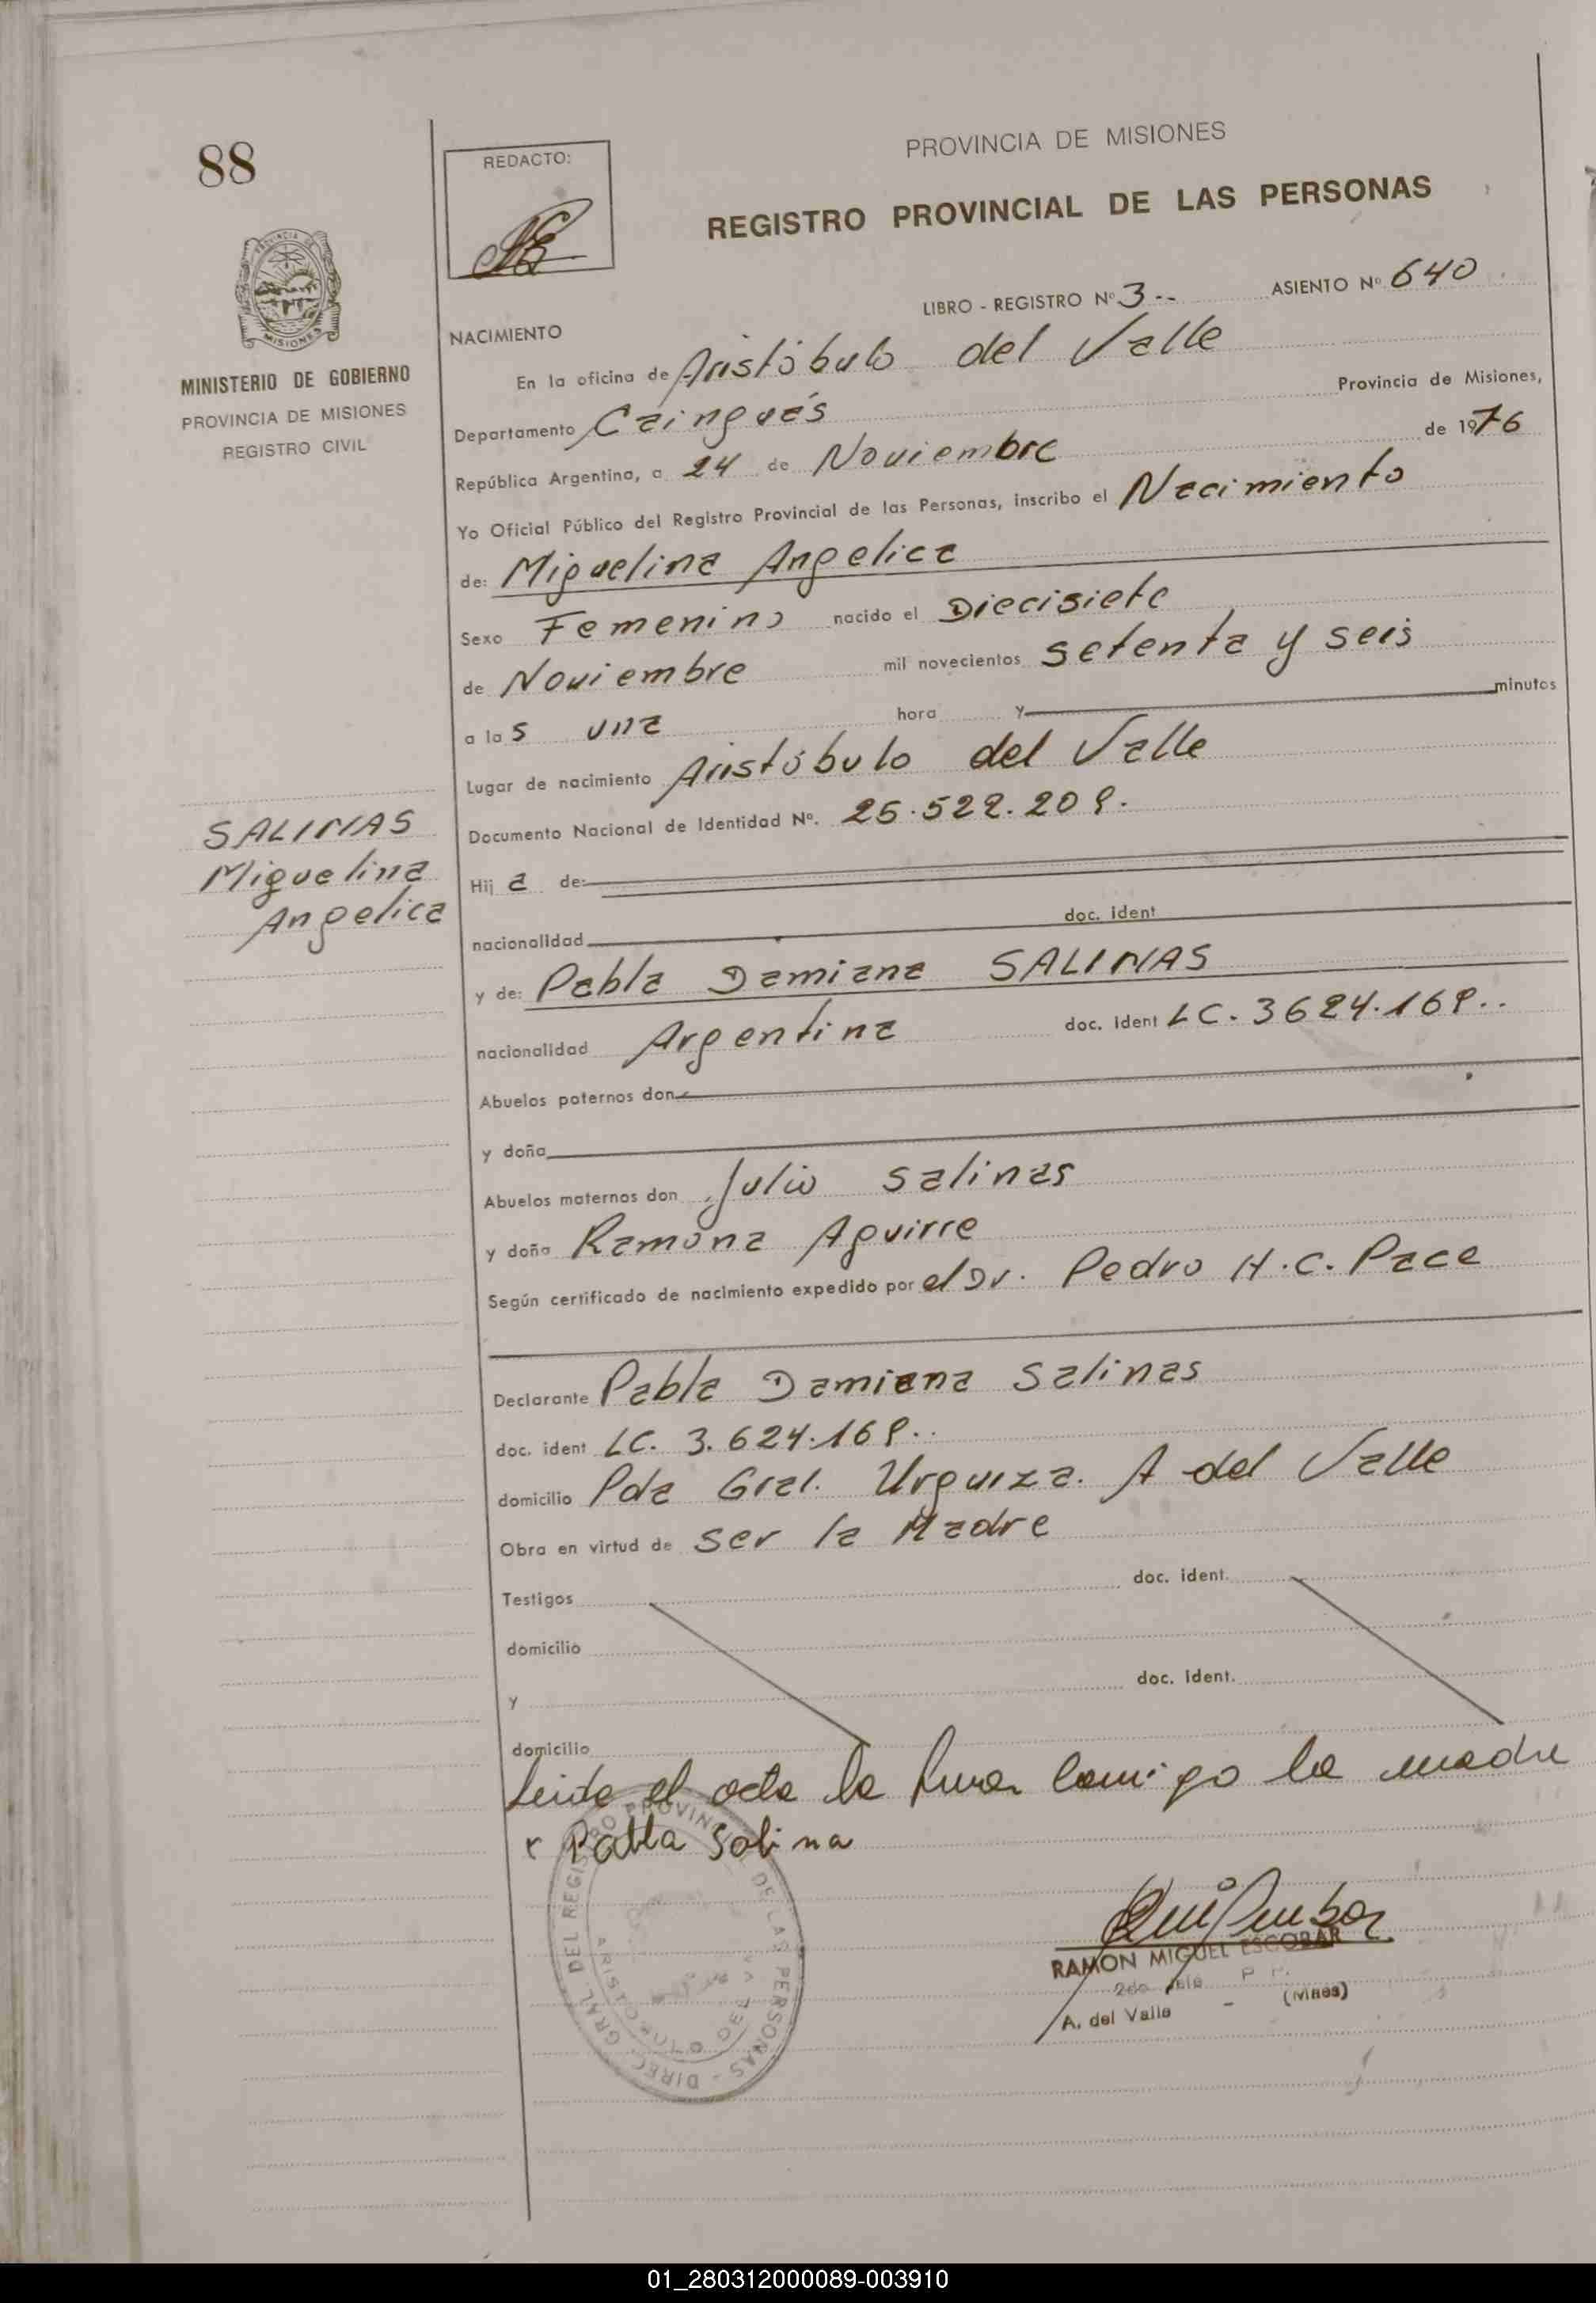 88
REDACTO:
PROVINCIA DE MISIONES
REGISTRO PROVINCIAL DE LAS PERSONAS
LIBRO - REGISTRO Nº 3-- ASIENTO Nº 640
MINISTERIO DE GOBIERNO
PROVINCIA DE MISIONES
REGISTRO CIVIL
NACIMIENTO
En la oficina de Aristóbulo del Valle
Departamento Cainguás Provincia de Misiones,
República Argentina, a 24 de Noviembre de 1976
Yo Oficial Público del Registro Provincial de las Personas, inscribo el Nacimiento
de: Miguelina Angelica
Sexo Femenino nacido el Diecisiete
de Noviembre mil novecientos setenta y seis
a las una hora y minutos
Lugar de nacimiento Aristóbulo del Valle
Documento Nacional de Identidad Nº. 25.522.209.
SALINAS
Miguelina
Angelica
Hija de:
nacionalidad doc. ident
y de: Pabla Damiana SALINAS
nacionalidad Argentina doc. ident LC. 3624.169..
Abuelos paternos don
y doña
Abuelos maternos don Julio Salinas
y doña Ramona Aguirre
Según certificado de nacimiento expedido por el Dr. Pedro H.C. Pace
Declarante Pabla Damiana Salinas
doc. ident LC. 3.624.169..
domicilio Pda Gral. Urquiza. A del Valle
Obra en virtud de ser la Madre
Testigos doc. ident.
domicilio
y doc. ident.
domicilio
Leida el acta la firma conmigo la madre
x Pabla Salina
RAMON MIGUEL ESCOBAR
A. del Valle - (Mnes)
DIREC. GRAL. DEL REGISTRO PROVINCIAL DE LAS PERSONAS -
ARISTOBULO DEL VALLE
01_280312000089-003910